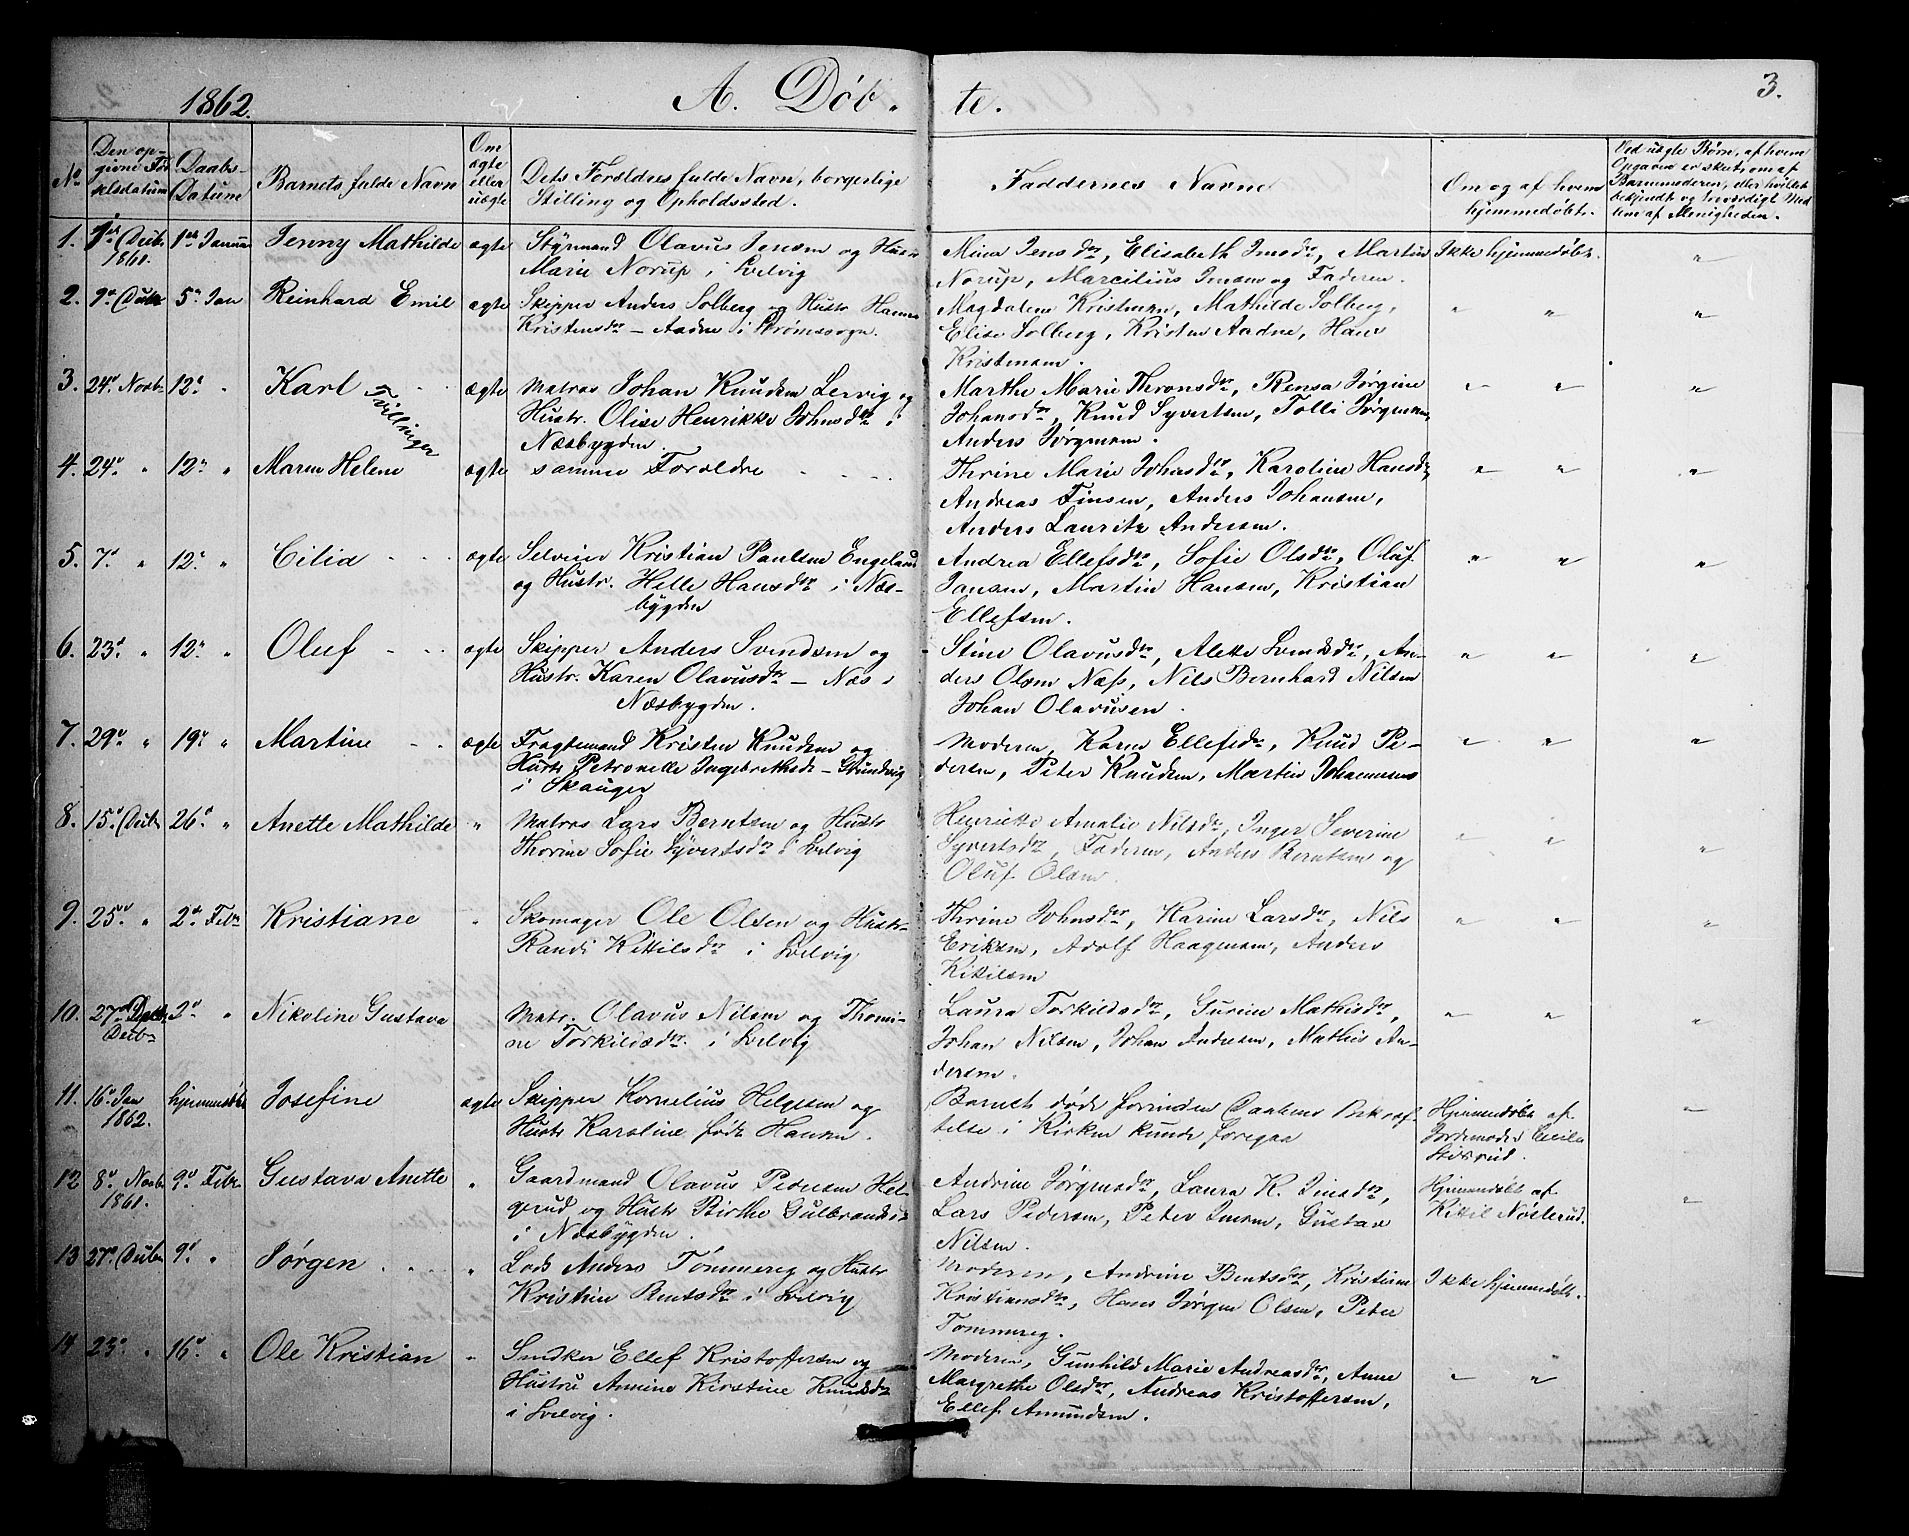 1862.
A. Døb-
te.
3.
No
Den op-
givne Fød-
selsdatum
Daabs-
Datum
Barnets fulde Navn
Om
ægte
eller
uægte
Dets Forældres fulde Navn, borgerlige
Stilling og Opholdssted.
Faddernes Navne
Om og af hvem
hjemmedøbt.
Ved uægte Børn, af hvem
Opgaven er skeet, om af
Barnemoderen, eller hvilket
bekjendt og troværdigt Med-
lem af Menigheden.
1. 1ste Decbr 1ste Januar Jenny Mathilde ægte Styrmand Olavus Jensen og Hustru
1861.
Marie Norup i Svelvig
Mina Jensdtr, Elisabeth Jensdtr, Martin
Norup, Marcilius Jensen og Faderen.
Ikke hjemmedøbt. "
2. 9de Decbr 5te Jan Reinhard Emil ægte Skipper Anders Solberg og Hustr. Hanna
Kristensdtr - Aadne i Strømssogn.
Magdalena Kristensen, Mathilde Solberg,
Elise Solberg, Kristen Aadne, Hans
Kristensen.
" " "
3. 24de Novbr 12te " Karl ægte Matros Johan Knudsen Lervig og
Tvillinger
Hustr. Olise Henrikke Johnsdtr i
Næsbygden.
Marthe Marie Thronsdtr, Rensa Jørgine
Johansdtr, Knud Syvertsen, Tolli Jørgensen,
Anders Jørgensen.
" " "
4. 24de " 12te " Maren Helene ægte samme Forældre
Thrine Marie Johnsdtr, Karoline Hansdtr,
Andreas Finsen, Anders Johansen,
Anders Lauritz Andersen.
" " "
5. 7de " 12te " Cilia ægte Selveier Kristian Paulsen Engelund
og Hustr. Helle Hansdtr i Næs-
bygden
Andrea Ellefsdtr, Sofie Olsdtr, Oluf
Jansen, Martin Hansen, Kristian
Ellefsen.
" " "
6. 23de " 12te " Oluf ægte Skipper Anders Svendsen og
Hustr. Karen Olavusdtr - Næs i
Næsbygden.
Stine Olavusdtr, Alette Svendsdtr, An-
ders Olsen Næss, Nils Bernhard Nilsen
Johan Olavusen.
" " "
7. 29de " 19de " Martine ægte Fragtemand Kristen Knudsen og
Hustr Petronelle Ingebrethsdtr - Grundvig
i Skauger
Moderen, Karen Ellefsdtr, Knud Pe-
dersen, Peter Knudsen, Martin Johannesen
" " "
8. 15de Decbr 26de " Anette Mathilde " Matros Lars Berntsen og Hustr
Thorine Sofie Syvertsdtr i Svelvig
Henriette Amalie Nilsdtr, Inger Severine
Syvertsdtr, Faderen, Anders Berntsen og
Oluf Olsen.
" " "
9. 25de " 2den Febr Kristiane " Skomager Ole Olsen og Hustr
Randi Kittilsdtr i Svelvig
Thrine Johnsdtr, Karine Larsdtr, Nils
Eriksen, Adolf Haagensen, Anders
Kittilsen
" " "
10. 27de 2den " Nikoline Gustava Matr. Olavus Nilsen og Thomi-
Decbr
ne Torkildsdtr i Svelvig
Laura Torkildsdtr, Gurine Mathisdtr,
Johan Nilsen, Johan Andresen, Mathis An-
dersen.
" " "
11. 16de Jan hjemmedøbt Josefine ægte Skipper Kornelius Helgesen og
1862.
Hustr Karoline født Hansen.
Barnet døde forinden Daabens Bekræf-
telse i Kirken kunde foregaa
Hjemmedøbt af
Jordemoder Cecilie
"
12 8de Novbr 9de Febr Gustava Anette " Gaardmand Olavus Pedersen Hel-
1861.
gerud og Hustr Birthe Gulbrandsdtr
i Næsbygden.
Andrine Jørgensdtr, Laura K. Jensdtr,
Lars Pedersen, Peter Jensen, Gustav
Nilsen.
Hjemmedøbt af
Kittil Nøsterud.
"
13 27de Decbr 9de " Jørgen " Lods Anders Tømmereg og Hustr
Kristine Bentsdtr i Svelvig
Moderen, Andrine Bentsdtr, Kristiane
Kristiansdtr, Hans Jørgen Olsen, Peter
Tømmereg.
Ikke hjemmedøbt.
14 23de " 16de " Ole Kristian " Snedker Ellef Kristoffersen og
Hustru Annine Kirstine Knudsdtr
i Svelvig.
Moderen, Gunhild Marie Andreasdtr, Anne
Margrethe Olsdtr, Andreas Kristoffersen,
Ellef Amundsen.
" "